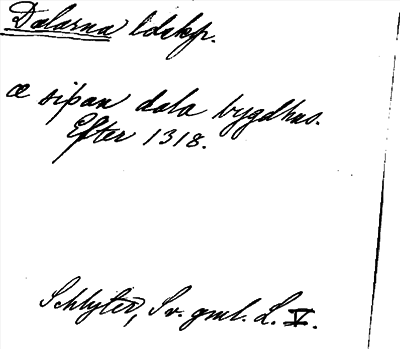 Dalarna ldskp.
æ siþan dala bygdhus.
Efter 1318.
Schlyter, Sv. gml. L. V.